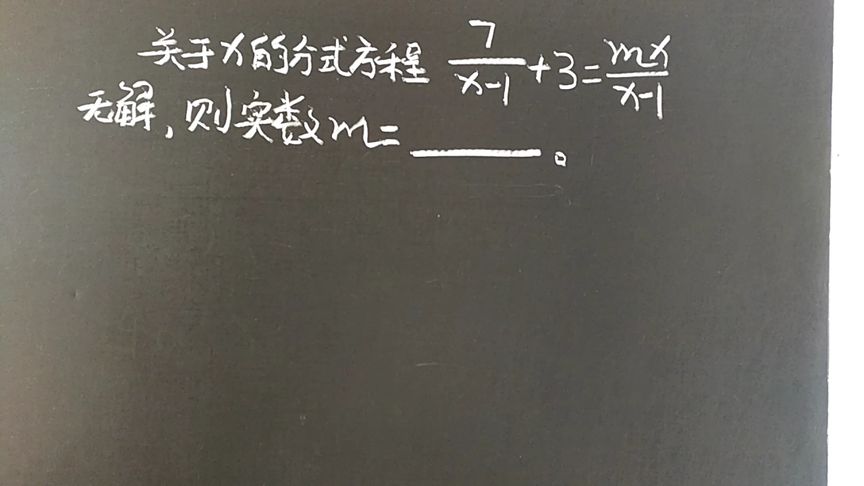 关于x的分式方程 7/(x-1)+3=mx/(x-1)
无解,则实数m=____。